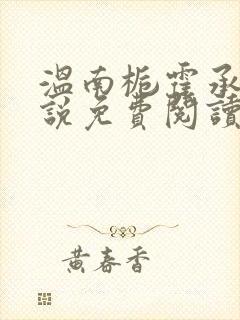 溫南栀霍承
說免費閱讀
黃春香